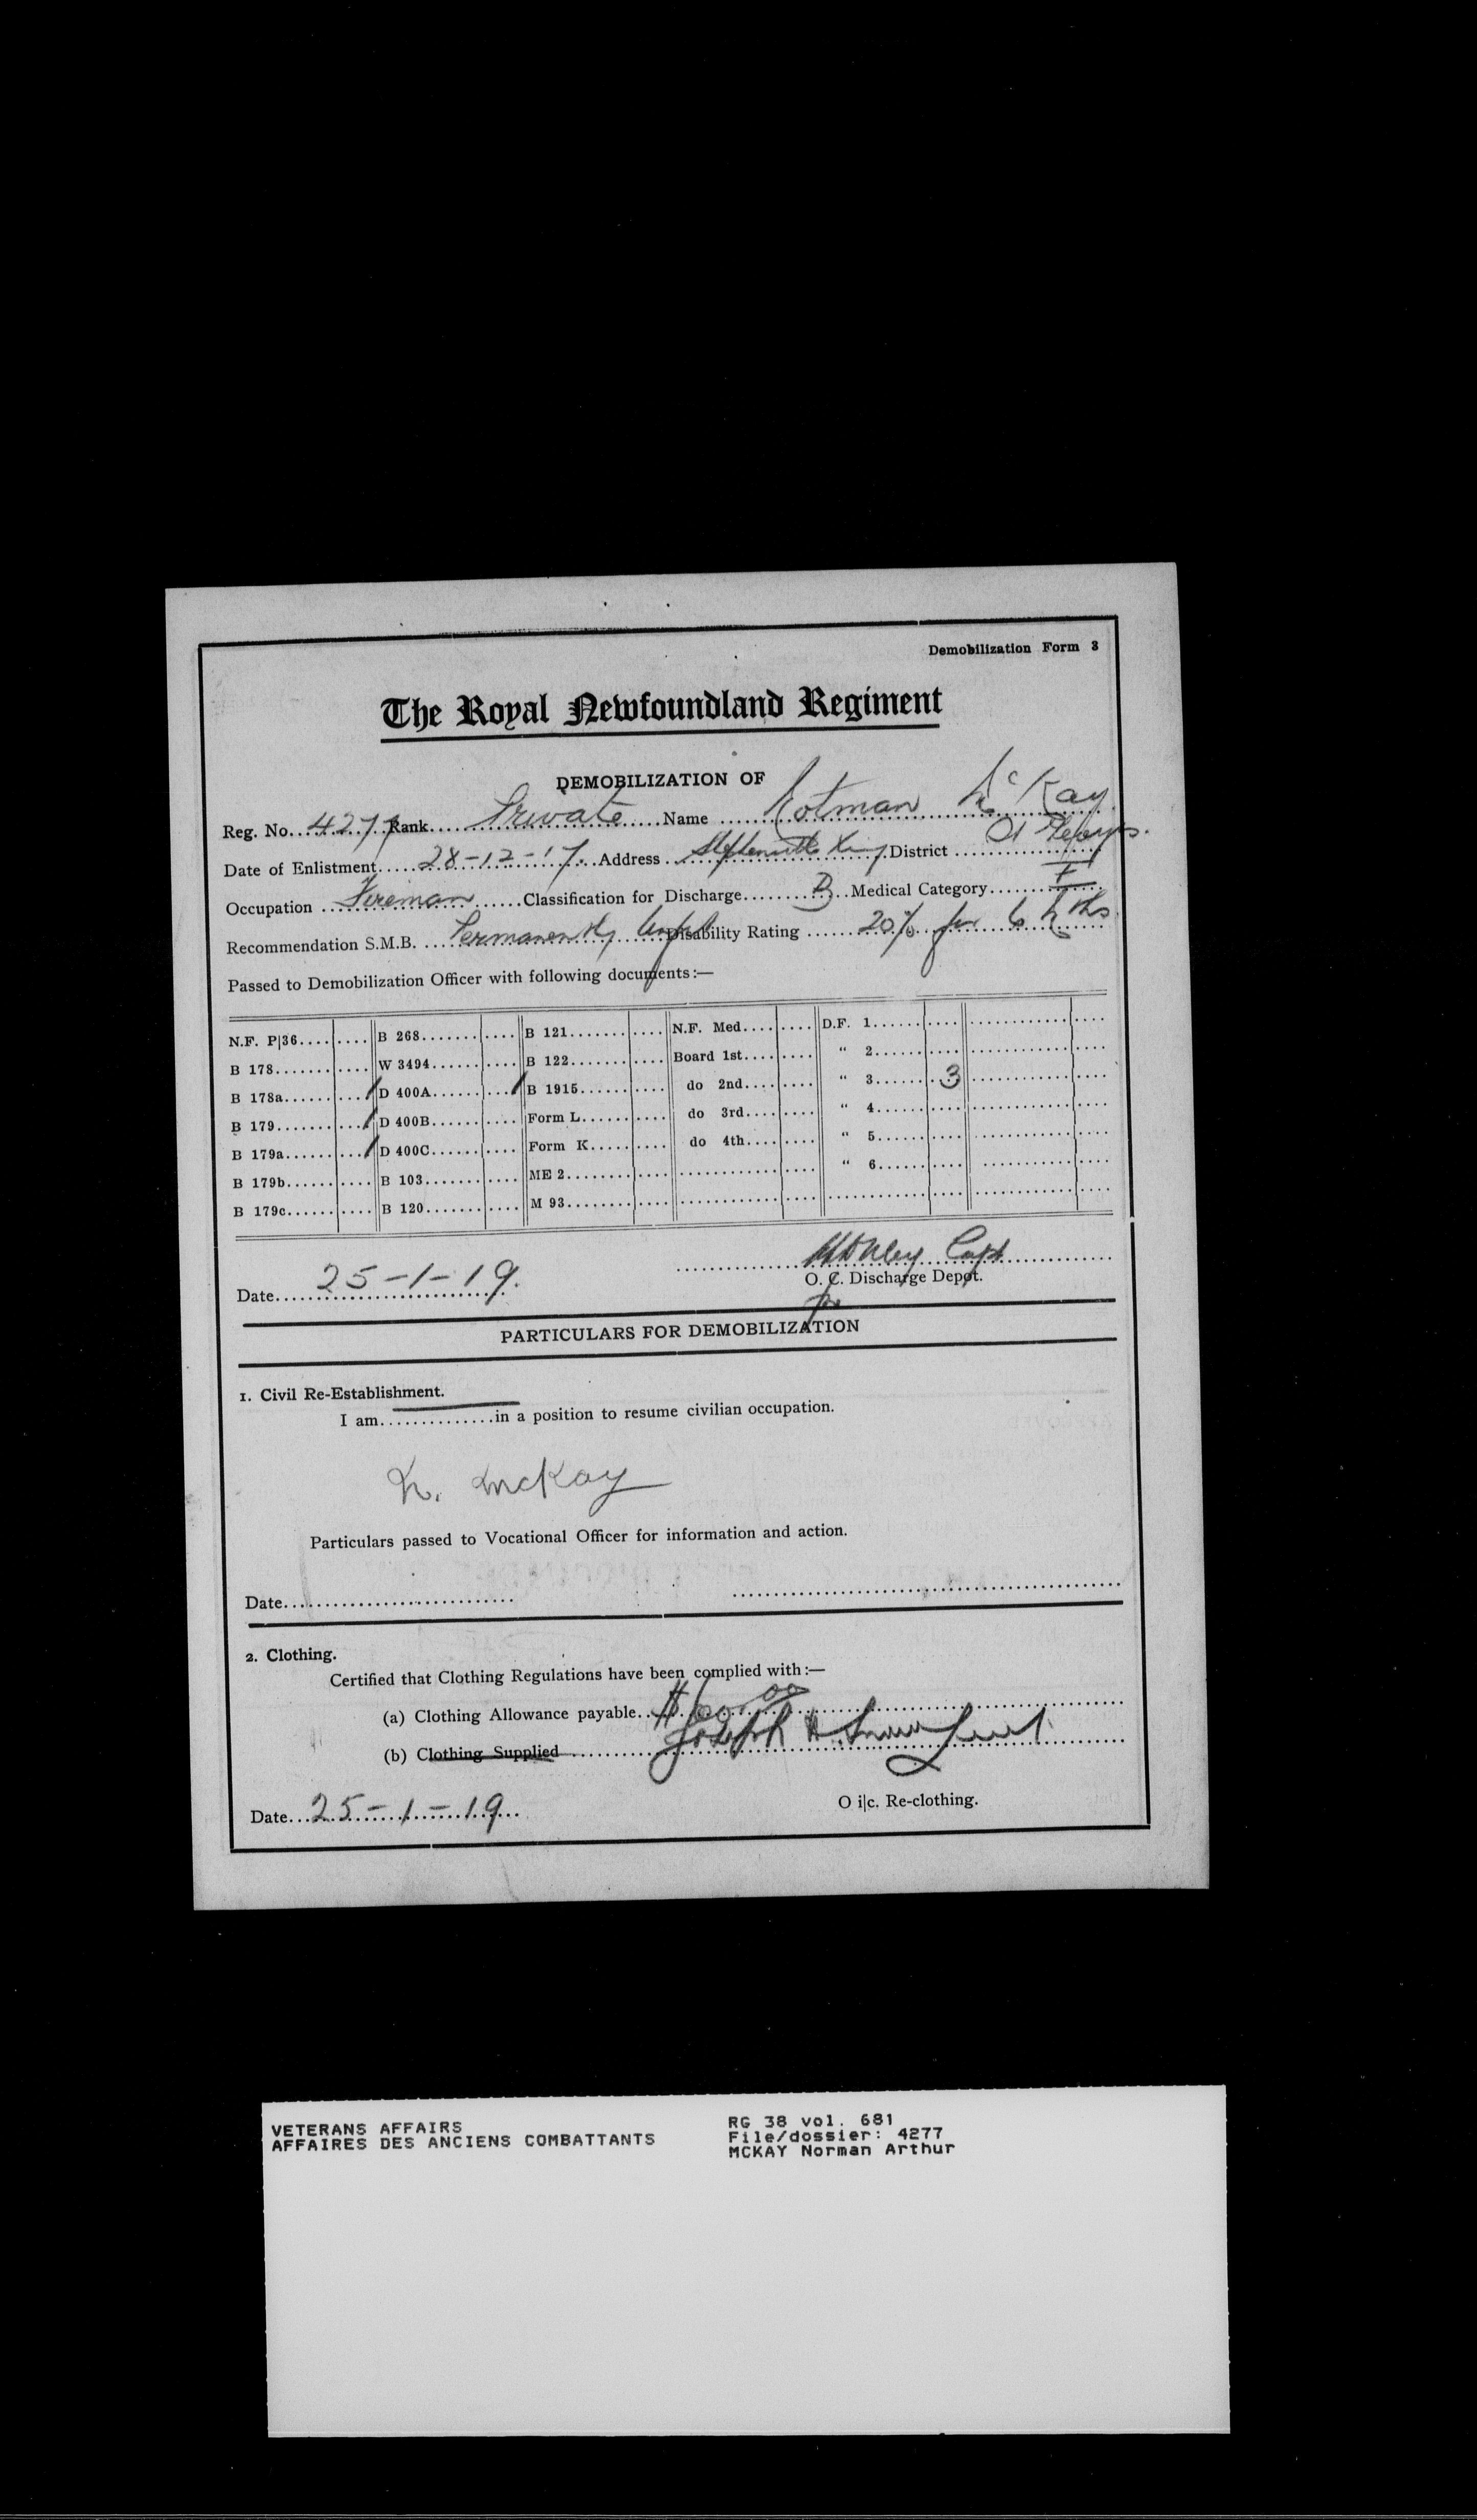 Demobilization Form 3
The Royal Newfoundland Regiment
DEMOBILIZATION OF
Reg. No. 4277 Rank Private Name Norman McKay
Date of Enlistment 28-12-17. Address District St Georges.
Occupation Fireman Classification for Discharge B Medical Category
Recommendation S.M.B. Permanently Unfit Disability Rating 20% for 6 Mths
Passed to Demobilization Officer with following documents:—
N.F. P|36 B 268 B 121 N.F. Med. D.F. 1
B 178 W 3494 B 122 Board 1st " 2
B 178a / D 400A / B 1915 do 2nd " 3 3
B 179 / D 400B Form L do 3rd " 4
B 179a / D 400C Form K do 4th " 5
B 179b B 103 ME 2 " 6
B 179c B 120 M 93
Capt
Date 25-1-19. O. C. Discharge Depot.
for
PARTICULARS FOR DEMOBILIZATION
1. Civil Re-Establishment.
I am in a position to resume civilian occupation.
N. McKay
Particulars passed to Vocational Officer for information and action.
Date
2. Clothing.
Certified that Clothing Regulations have been complied with:—
(a) Clothing Allowance payable $60.00
(b) Clothing Supplied Joseph
Date 25-1-19 O i|c. Re-clothing.
VETERANS AFFAIRS
AFFAIRES DES ANCIENS COMBATTANTS
RG 38 vol. 681
File/dossier: 4277
MCKAY Norman Arthur